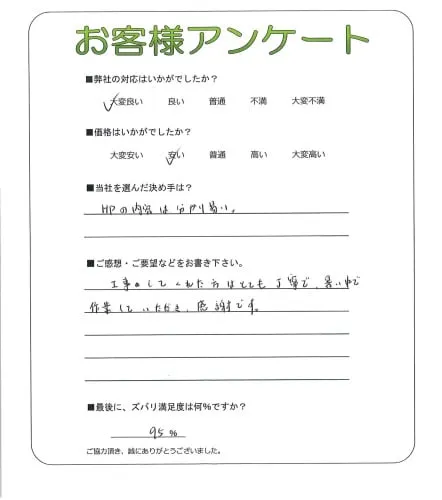 お客様アンケート
■弊社の対応はいかがでしたか？
大変良い 良い 普通 不満 大変不満
■価格はいかがでしたか？
大変安い 安い 普通 高い 大変高い
■当社を選んだ決め手は？
HPの内容は分かり易い。
■ご感想・ご要望などをお書き下さい。
工事をしてくれた方はとても丁寧で、暑い中で
作業していただき、感謝です。
■最後に、ズバリ満足度は何%ですか？
95%
ご協力頂き、誠にありがとうございました。